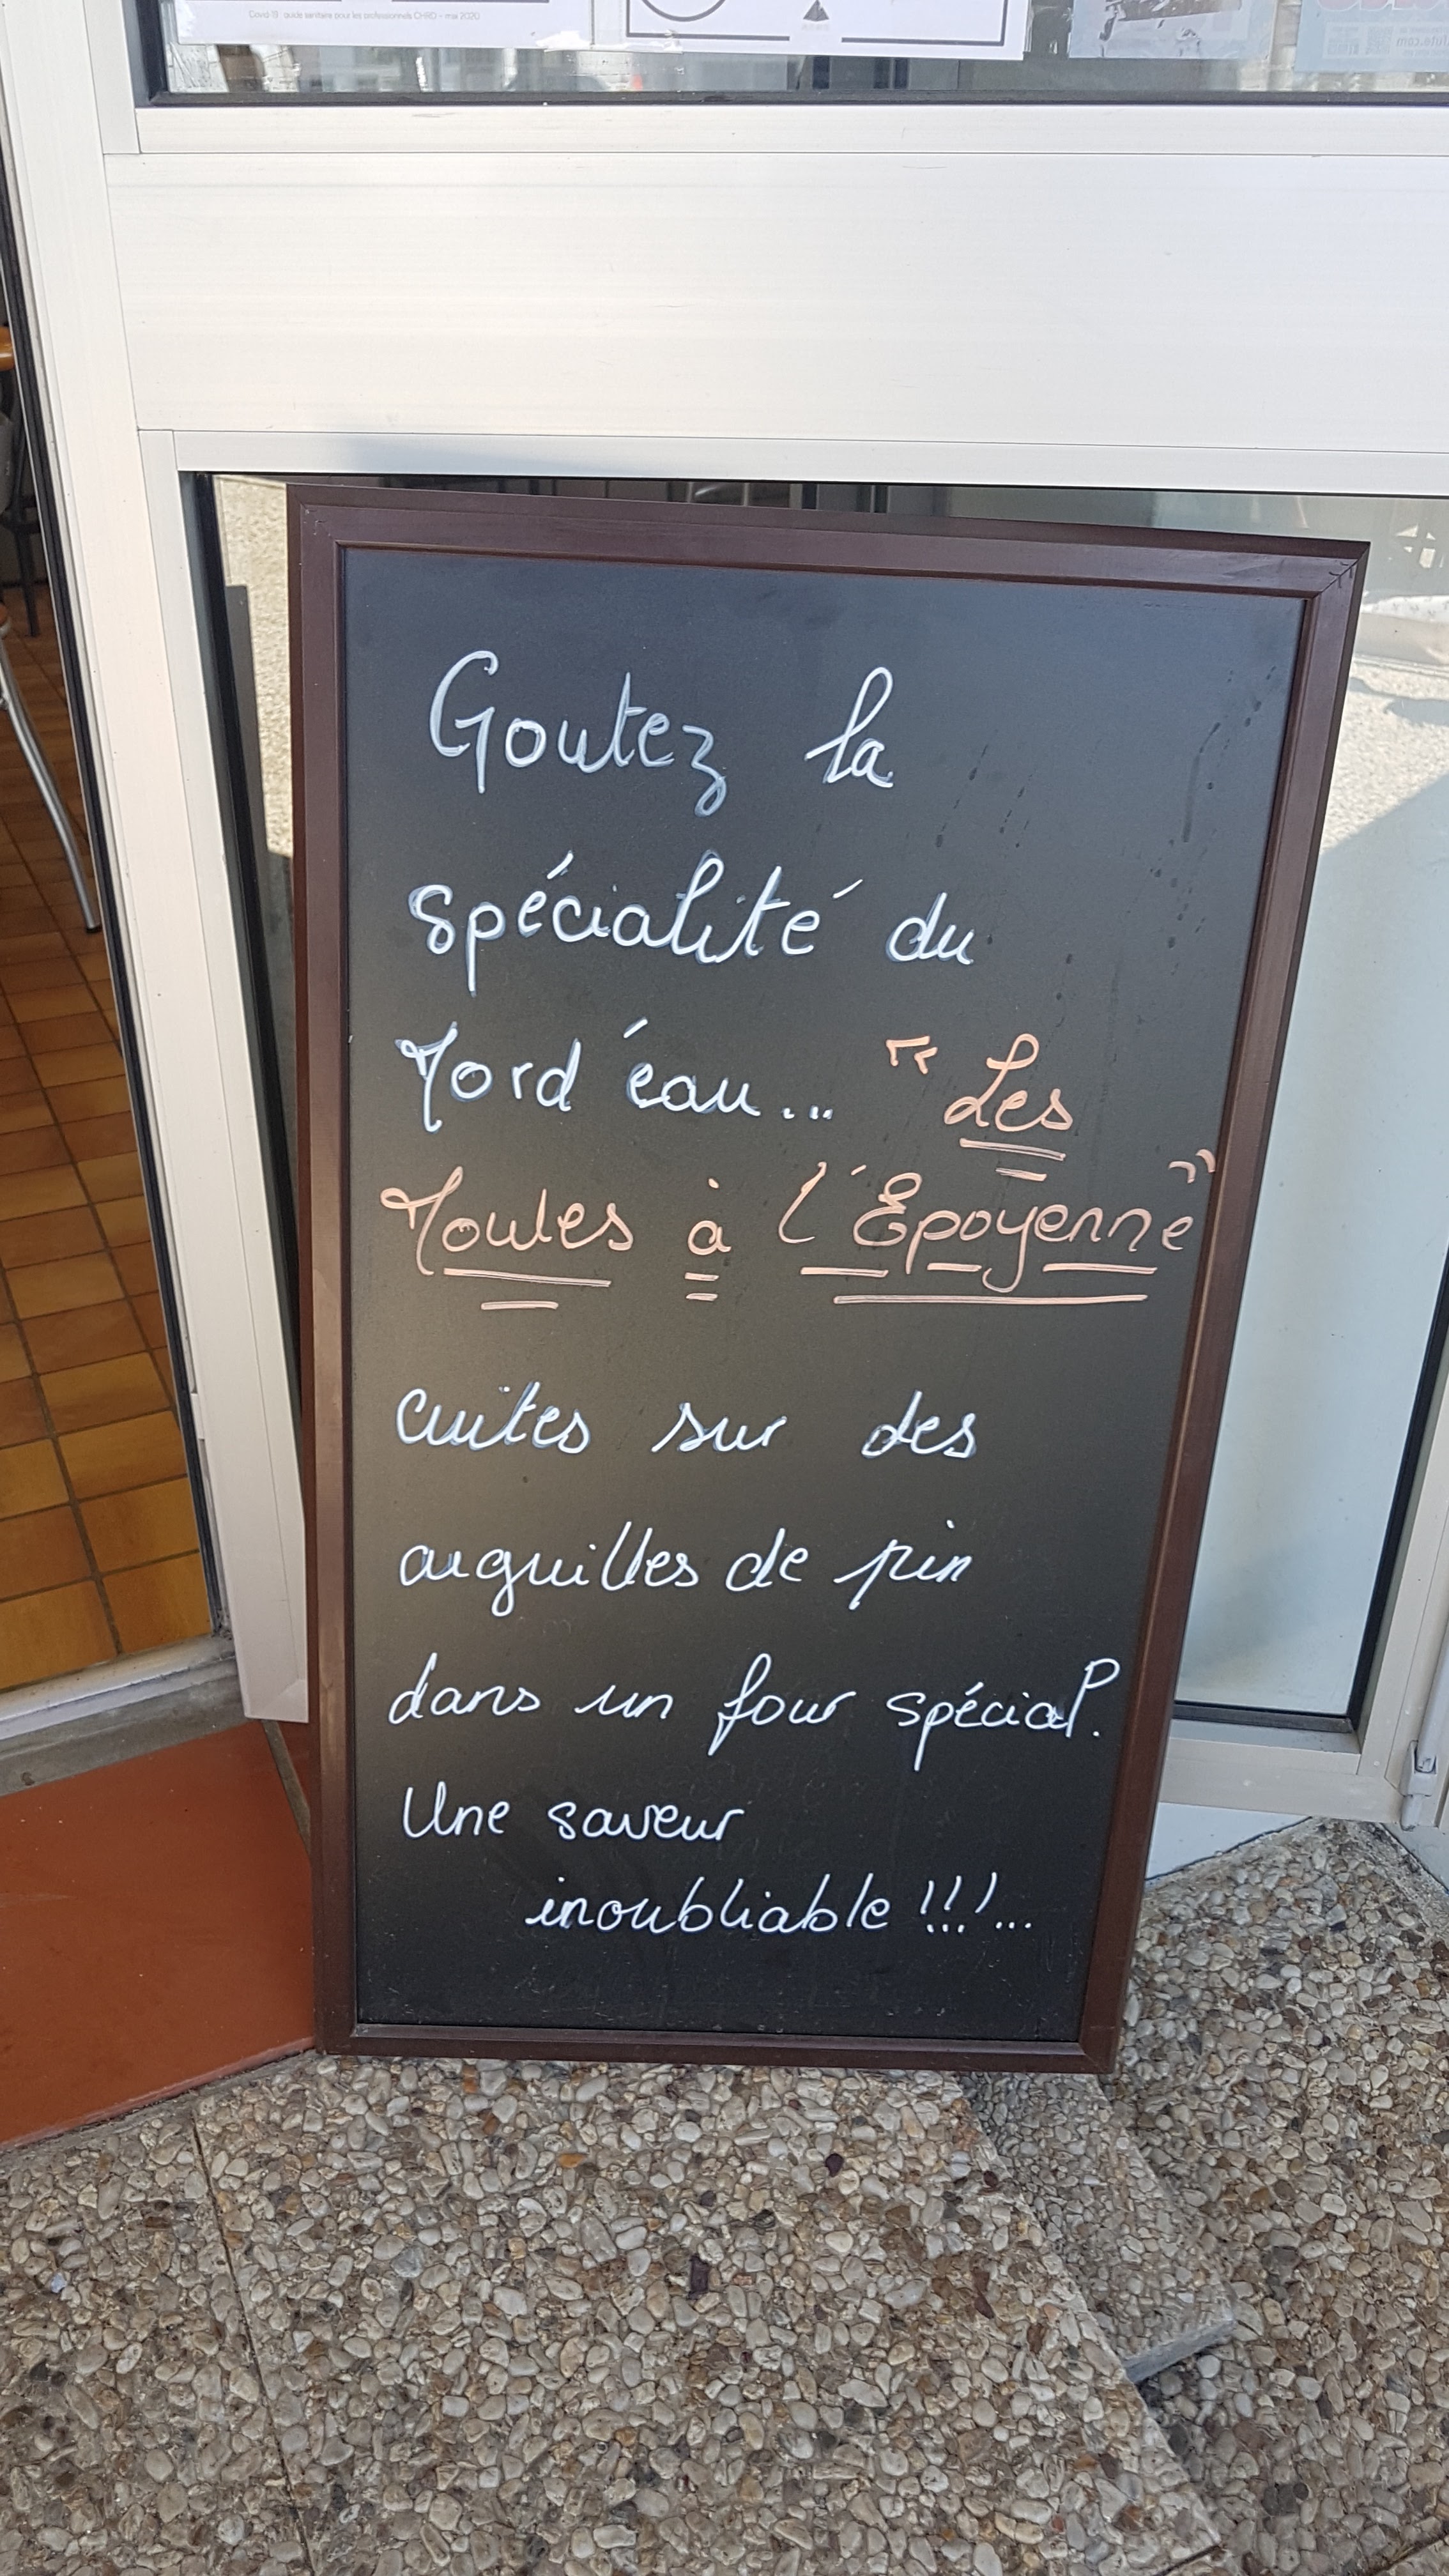 Covid-19 : guide sanitaire pour les professionnels CHRD - mai 2020
Goutez la
spécialité du
Mord'éau... "Les
Moules à l'Epoyenne"
cuites sur des
aiguilles de pin
dans un four spécial.
Une saveur
inoubliable !!!...